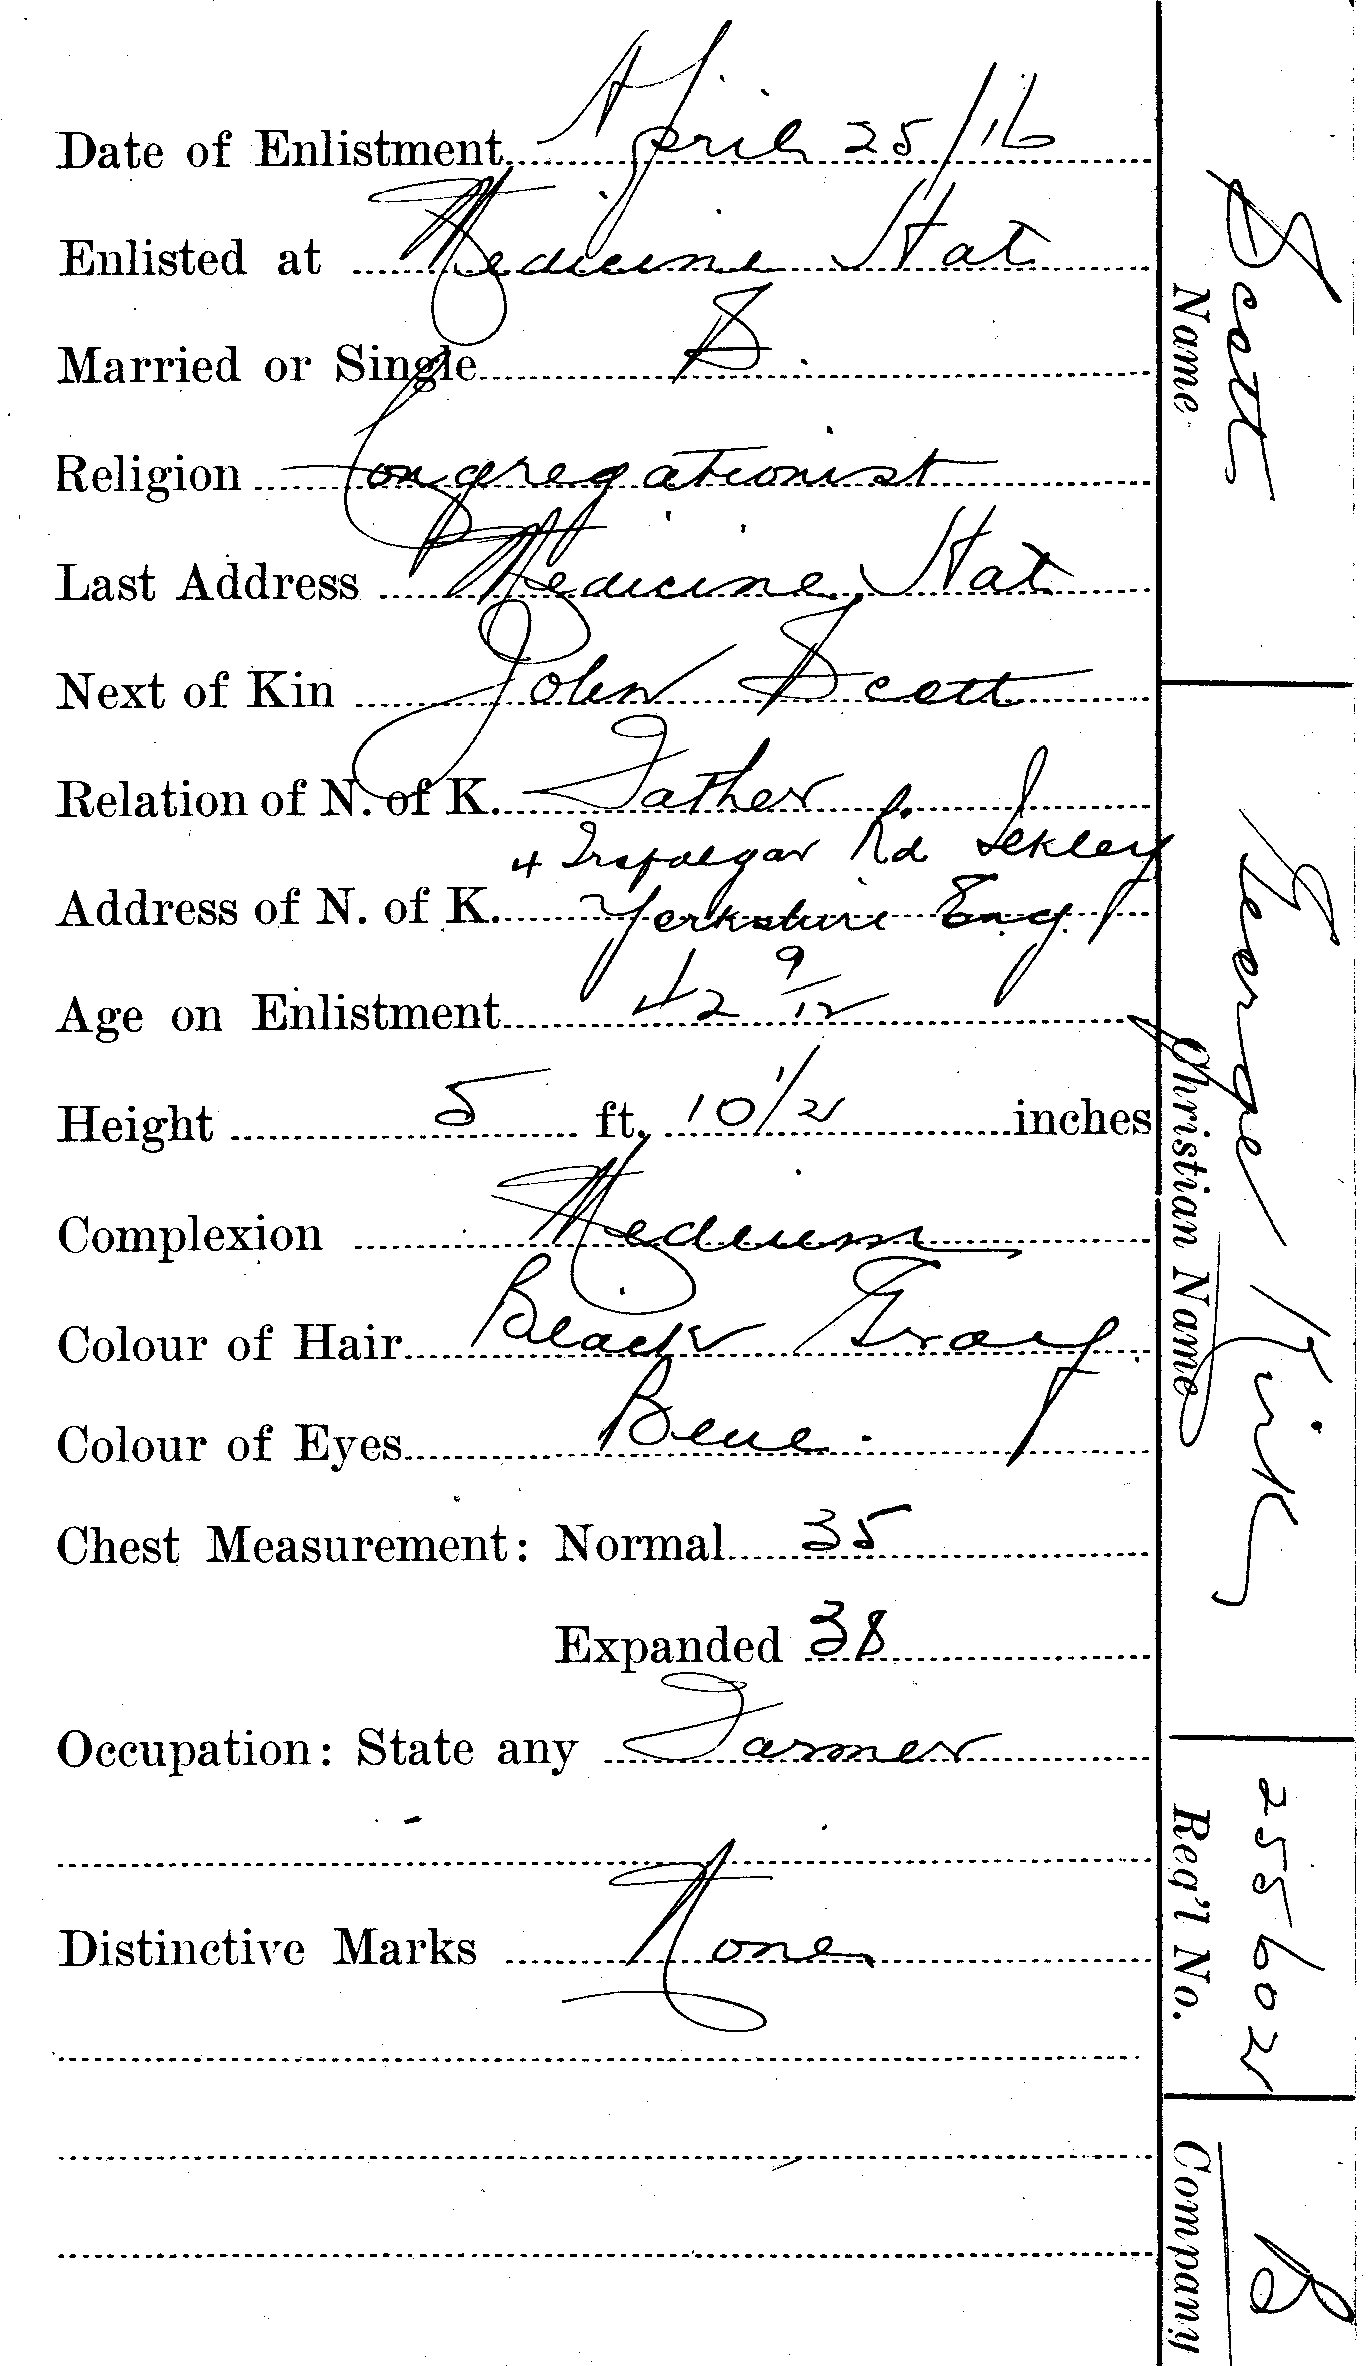 Date of Enlistment April 25/16
Enlisted at Medicine Hat
Married or Single S.
Religion Congregationist
Last Address Medicine Hat
Next of Kin John Scott
Relation of N. of K. Father
4 Trafalgar Rd Ilkley
Address of N. of K. Yorkshire Eng.
Age on Enlistment 42 9/12
Height 5 ft. 10 1/2 inches
Complexion Medium
Colour of Hair Black Gray
Colour of Eyes Blue.
Chest Measurement: Normal 35
Expanded 38
Occupation: State any Farmer
Distinctive Marks None
Scott
Name
George Kirk
Christian Name
255602
Req'l No.
B
Company